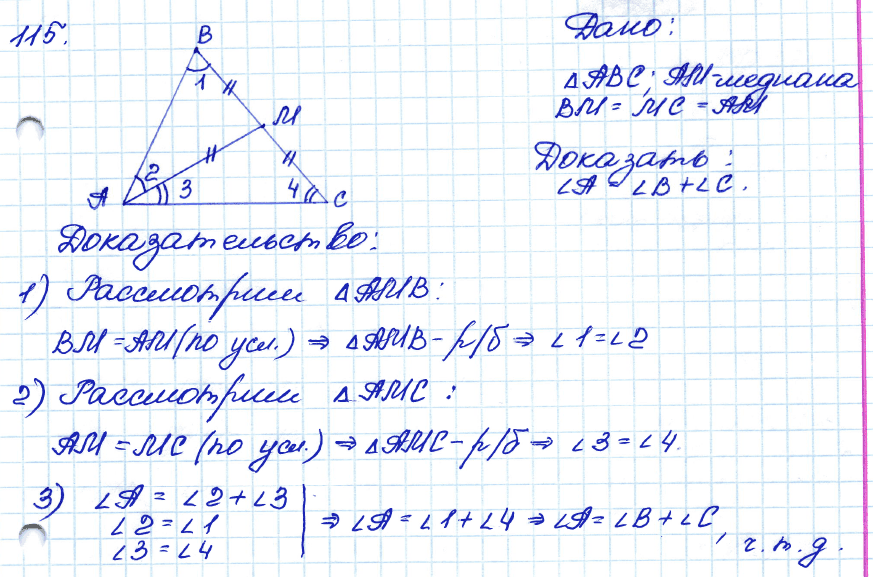 115.
B
1
M
2
3
4
A
C
Дано:
△ABC; AM-медиана
BM = MC = AM
Доказать:
∠A = ∠B + ∠C.
Доказательство:
1) Рассмотрим △AMB:
BM = AM (по усл.) ⇒ △AMB - р/б ⇒ ∠1 = ∠2
2) Рассмотрим △AMC:
AM = MC (по усл.) ⇒ △AMC - р/б ⇒ ∠3 = ∠4.
3) ∠A = ∠2 + ∠3
∠2 = ∠1
∠3 = ∠4
⇒ ∠A = ∠1 + ∠4 ⇒ ∠A = ∠B + ∠C,
ч.т.д.